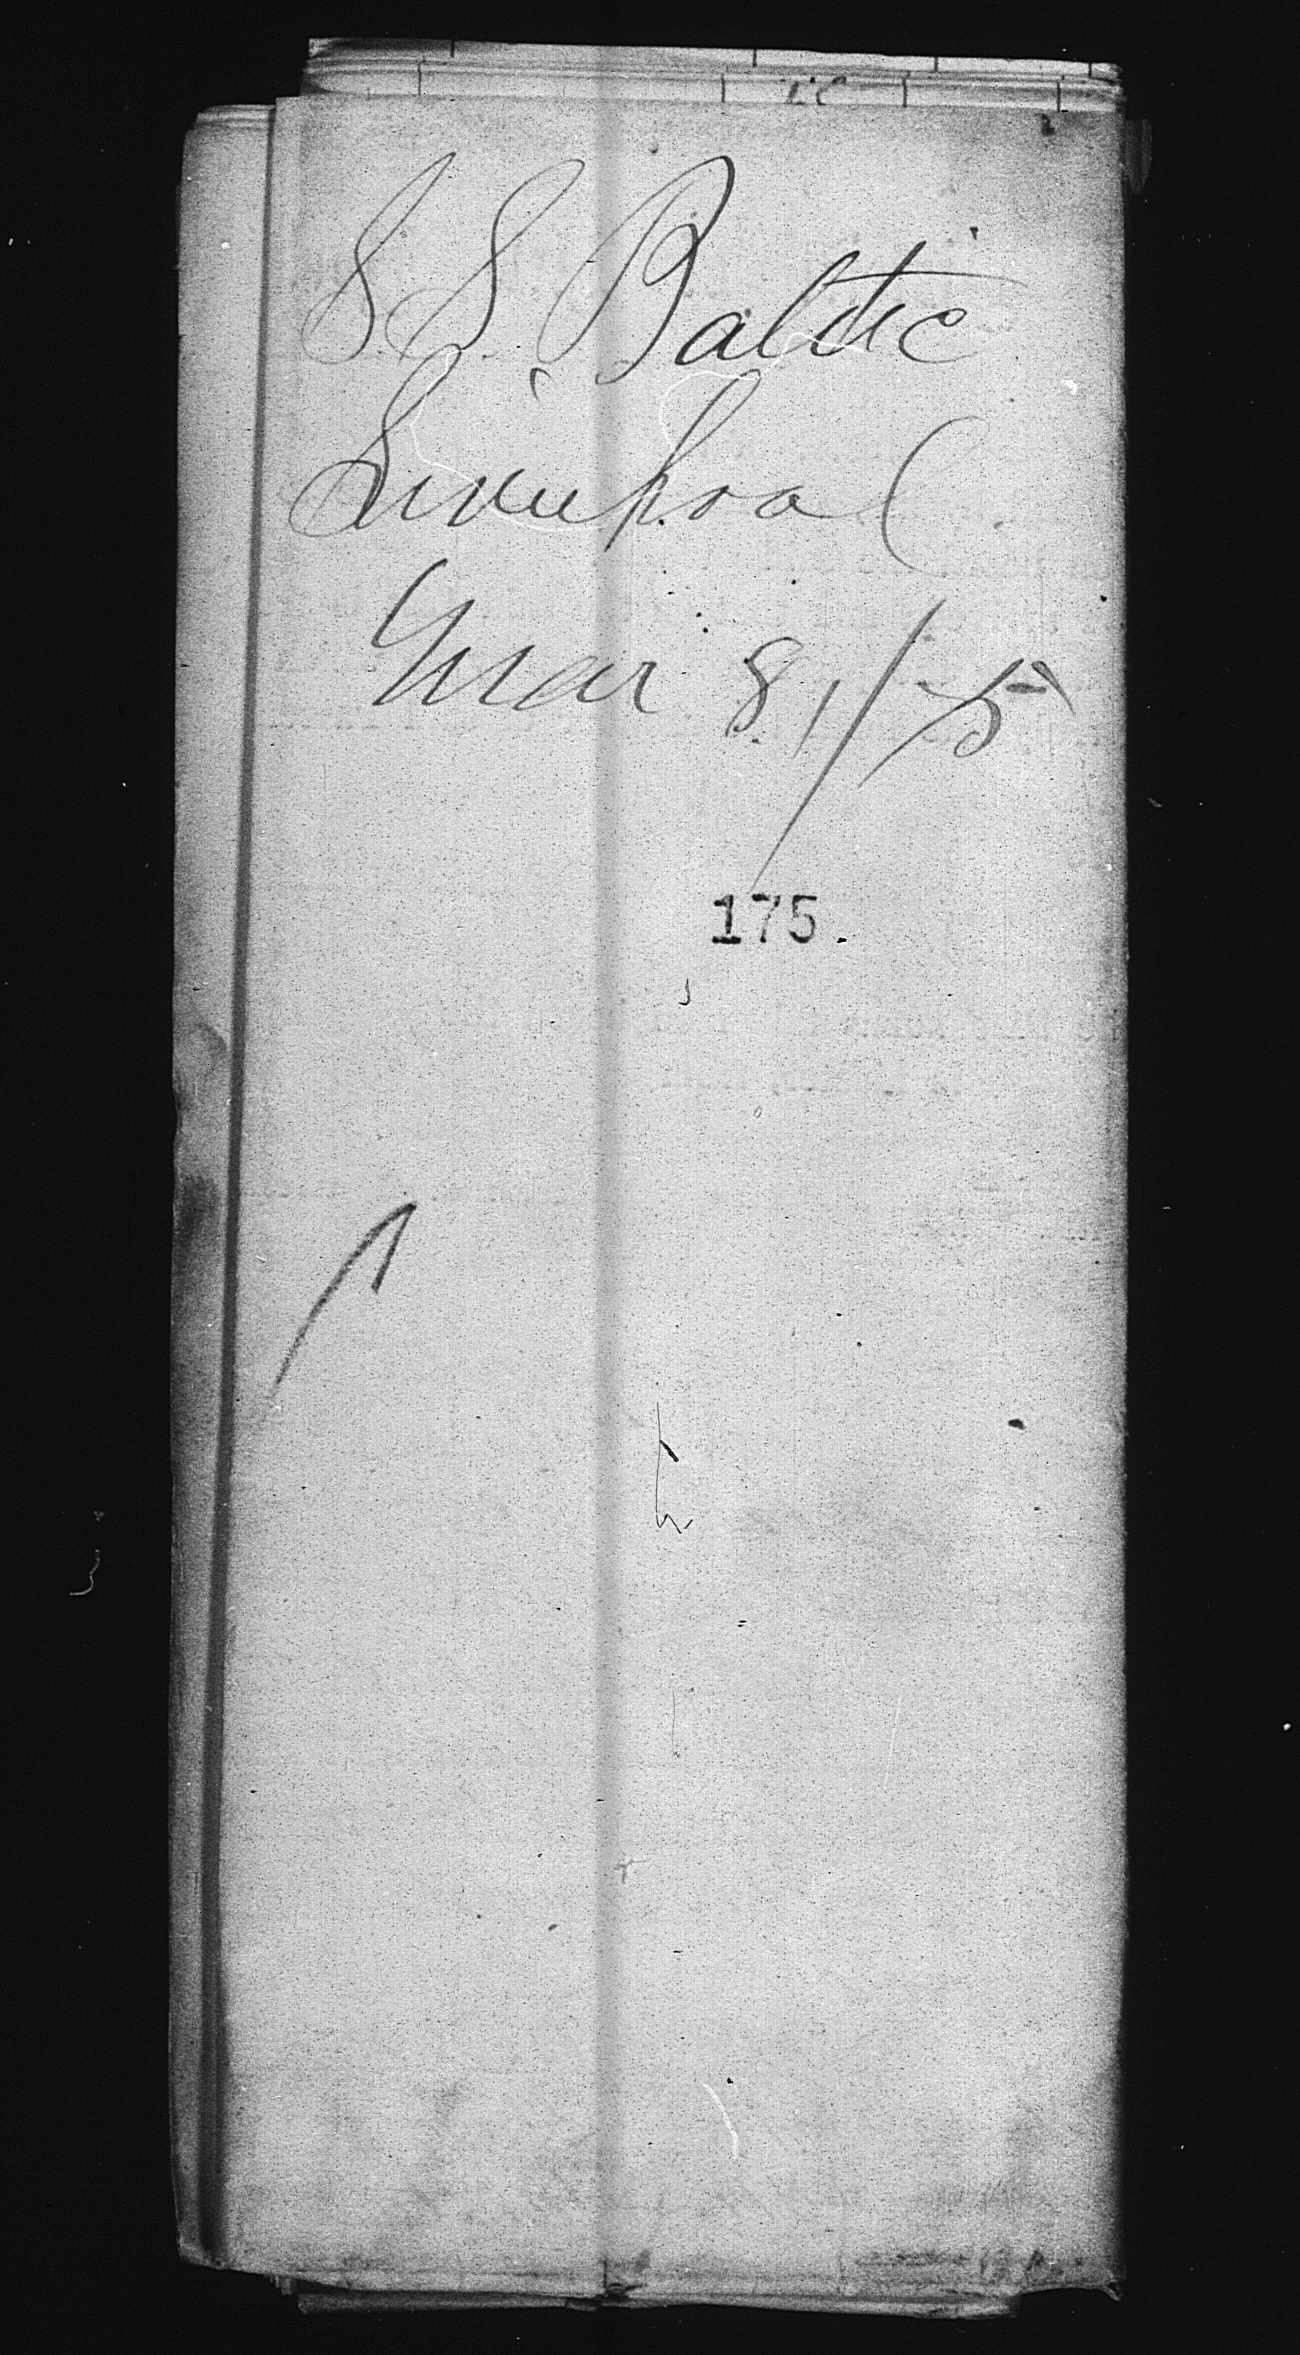 S.S. Baltic
Liverpool
Mar 8, /75
175.